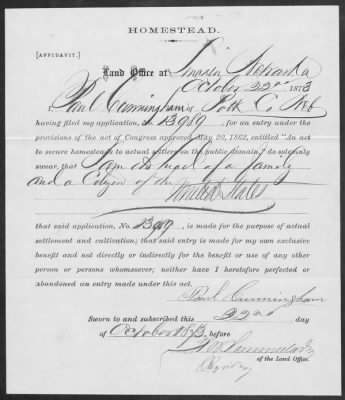 HOMESTEAD.
[AFFIDAVIT.]
Land Office at Lincoln Nebraska
October 22nd 1873
I, Paul Cunningham of Polk Co Neb
having filed my application, No. 13989, for an entry under
the provisions of the act of Congress approved May 20, 1862, entitled "An act
to secure homesteads to actual settlers on the public domain," do solemnly
swear, that I am the head of a family
and a Citizen of the
United States
that said application, No. 13989, is made for the purpose of actual
settlement and cultivation; that said entry is made for my own exclusive
benefit and not directly or indirectly for the benefit or use of any other
person or persons whomsoever; neither have I heretofore perfected or
abandoned an entry made under this act.
Paul Cunningham
Sworn to and subscribed this 22nd day
of October 1873, before
of the Land Office.